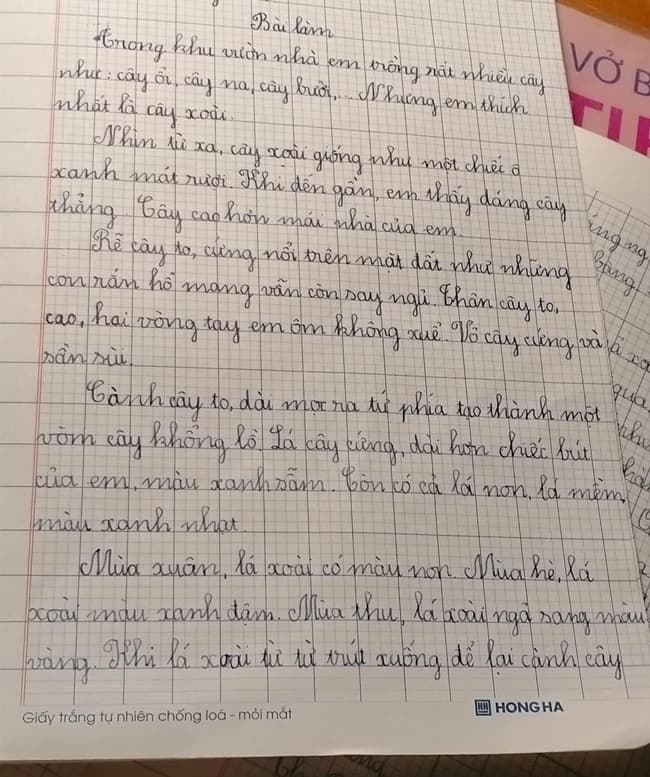 Bài làm
Trong khu vườn nhà em trồng rất nhiều cây
như: cây ổi, cây na, cây bưởi,... Nhưng em thích
nhất là cây xoài.
Nhìn từ xa, cây xoài giống như một chiếc ô
xanh mát rượi. Khi đến gần, em thấy dáng cây
thẳng. Cây cao hơn mái nhà của em.
Rễ cây to, cứng nổi trên mặt đất như những
con rắn hổ mang vẫn còn say ngủ. Thân cây to,
cao, hai vòng tay em ôm không xuể. Vỏ cây cứng và
sần sùi.
Cành cây to, dài mọc ra tứ phía tạo thành một
vòm cây khổng lồ. Lá cây cứng, dài hơn chiếc bút
của em, màu xanh sẫm. Còn có cả lá non, lá mềm,
màu xanh nhạt.
Mùa xuân, lá xoài có màu non. Mùa hè, lá
xoài màu xanh đậm. Mùa thu, lá xoài ngả sang màu
vàng. Khi lá xoài từ từ trút xuống để lại cành cây
Giấy trắng tự nhiên chống loá - mỏi mắt
HH HONG HA
VỞ B